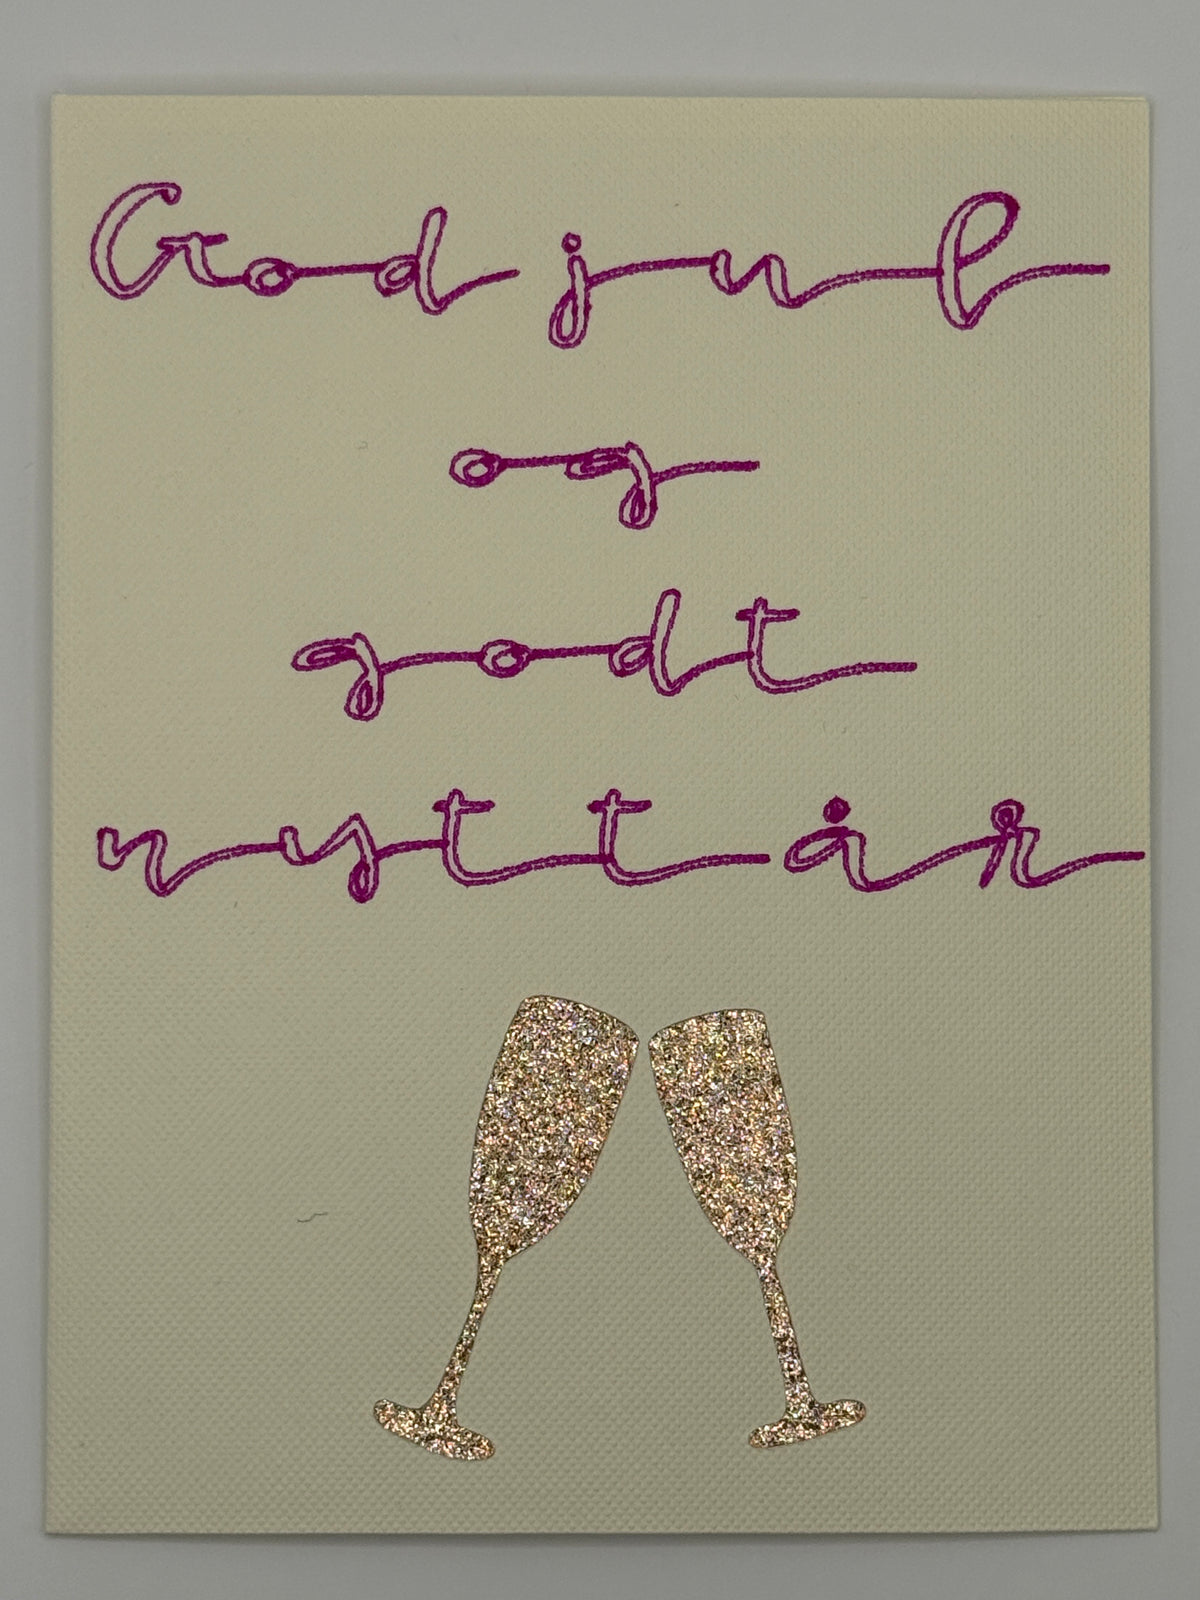 God jul
og
godt
nytt år